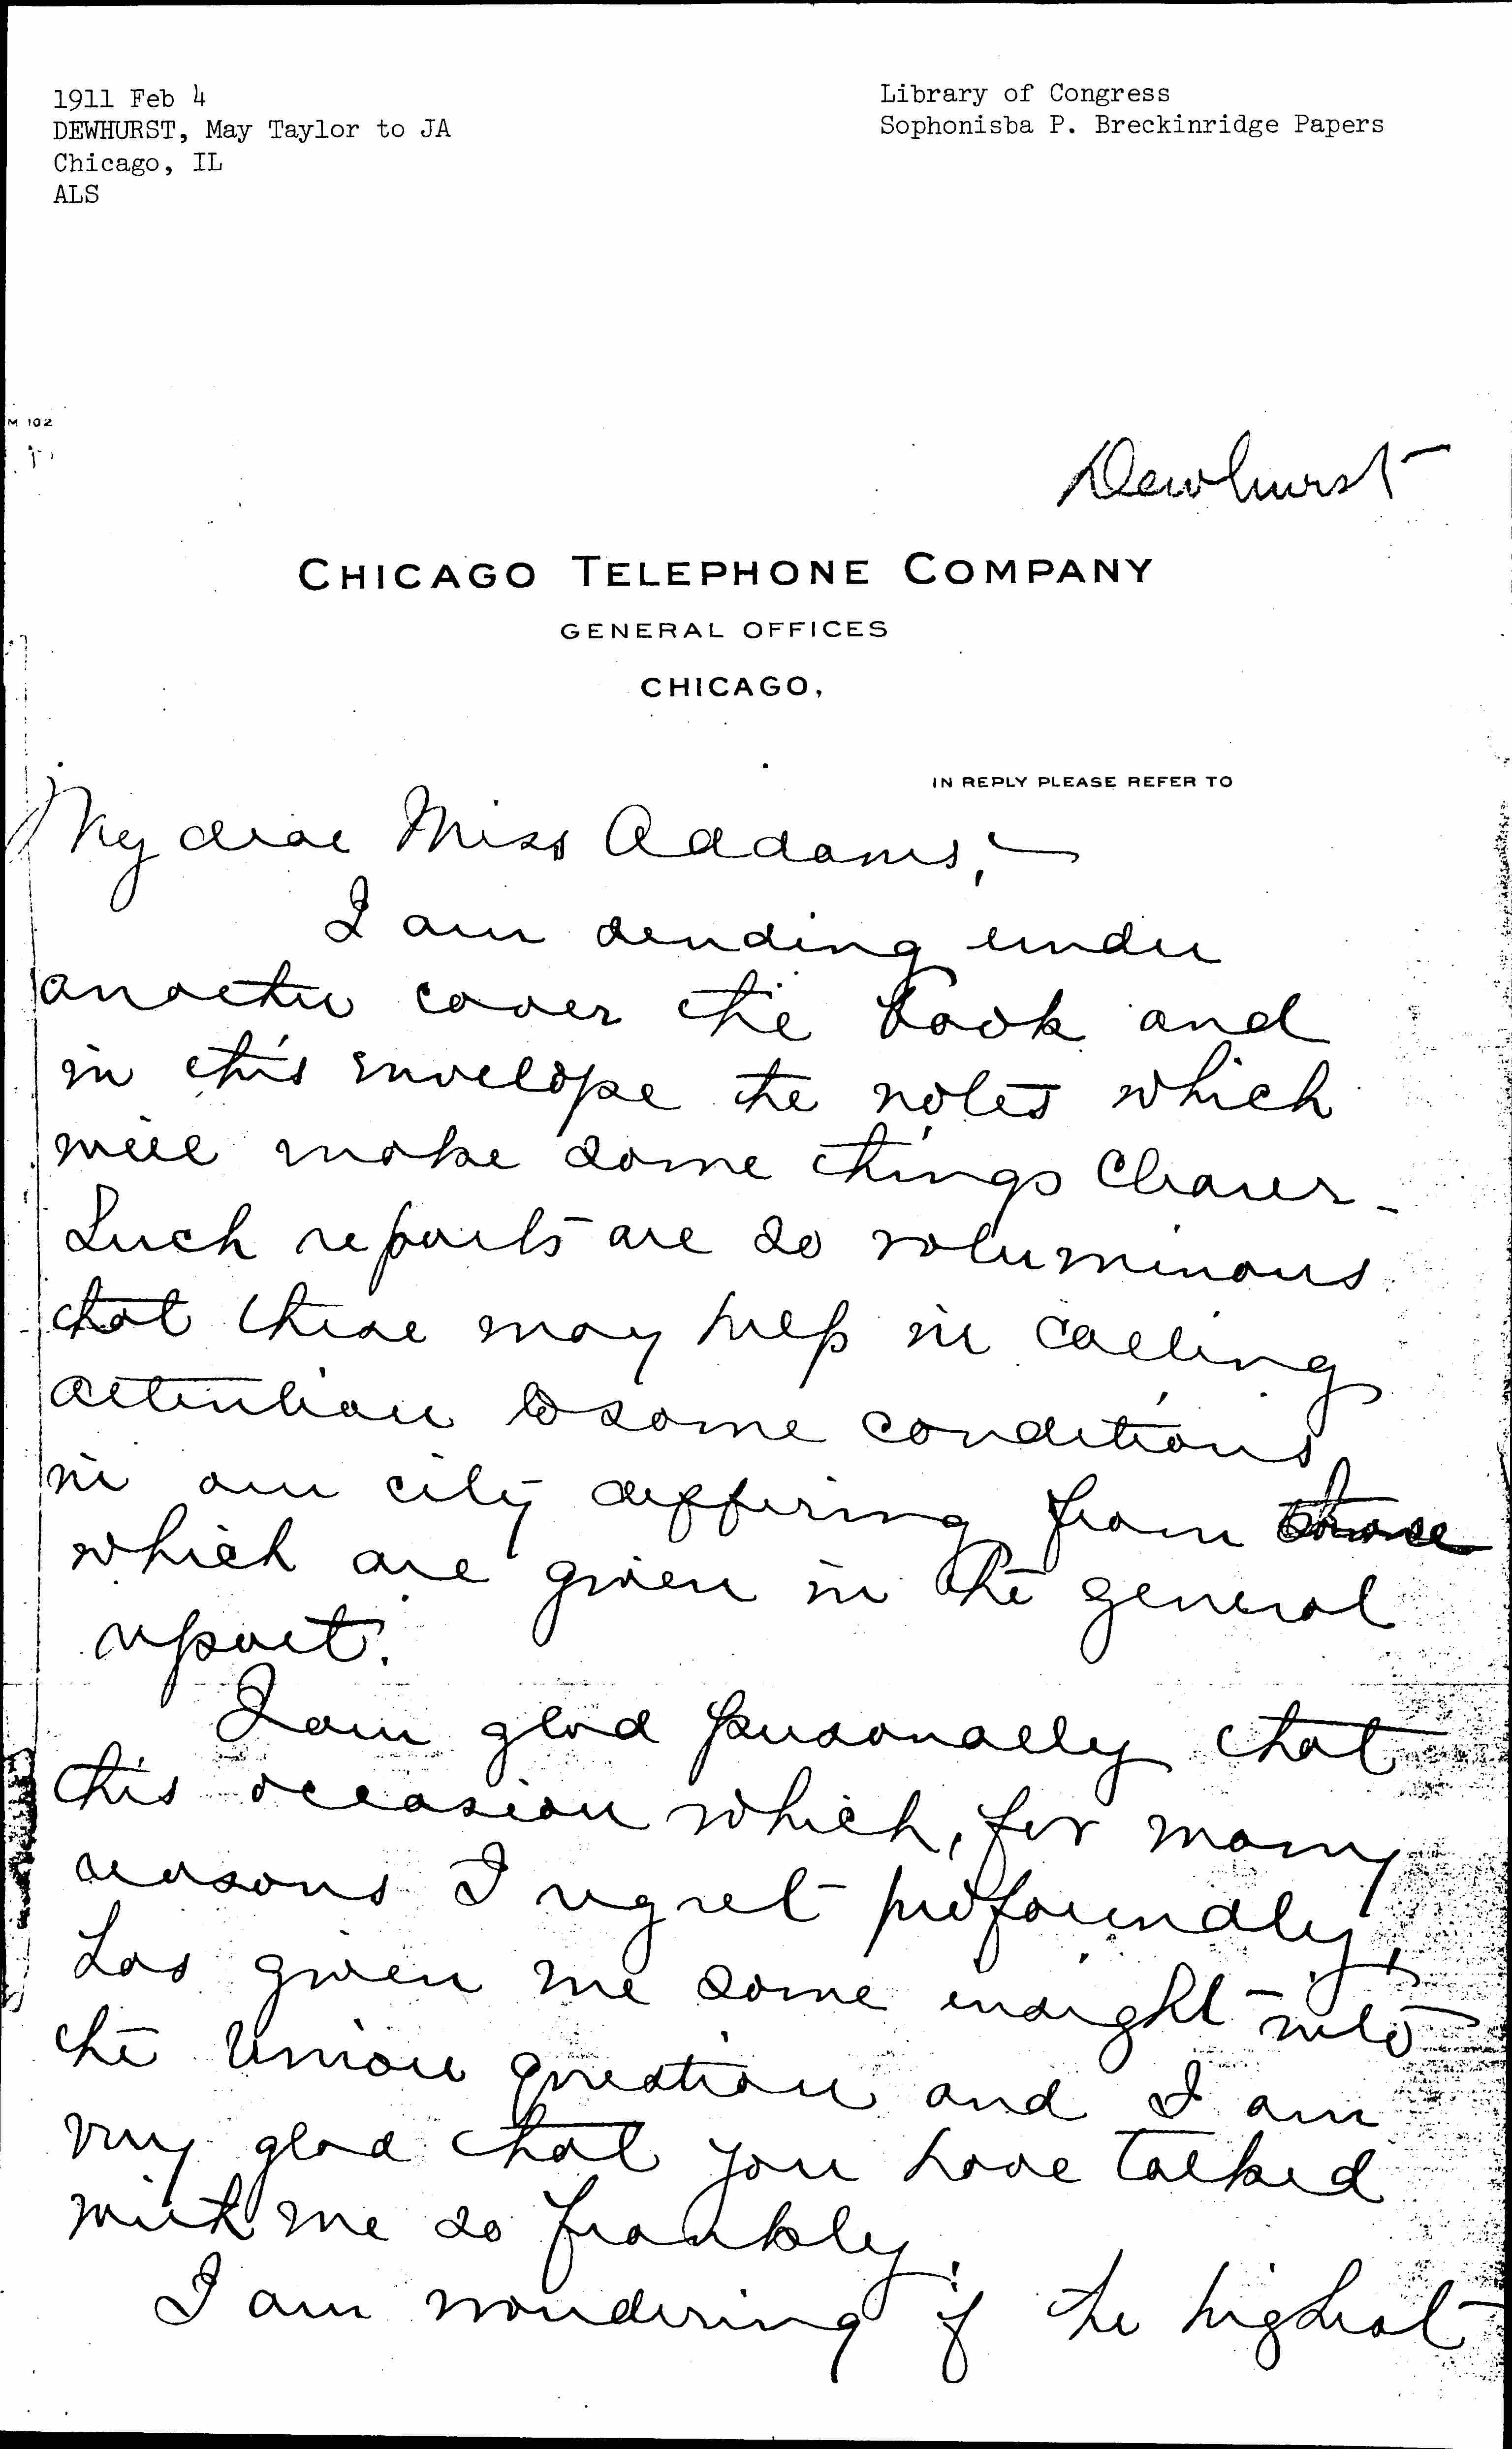 1911 Feb 4
DEWHURST, May Taylor to JA
Chicago, IL
ALS
Library of Congress
Sophonisba P. Breckinridge Papers
M 102
Dewhurst
CHICAGO TELEPHONE COMPANY
GENERAL OFFICES
CHICAGO,
IN REPLY PLEASE REFER TO
My dear Miss Addams,—
I am sending under
another cover the book and
in this envelope the notes which
will make some things clearer-
Such reports are so voluminous
that these may help in calling
attention to some conditions
in our city differing from those
which are given in the general
report.
I am glad personally that
this occasion which, for many
reasons I regret profoundly,
has given me some insight into
the Union question and I am
very glad that you have talked
with me so frankly.
I am wondering if the highest